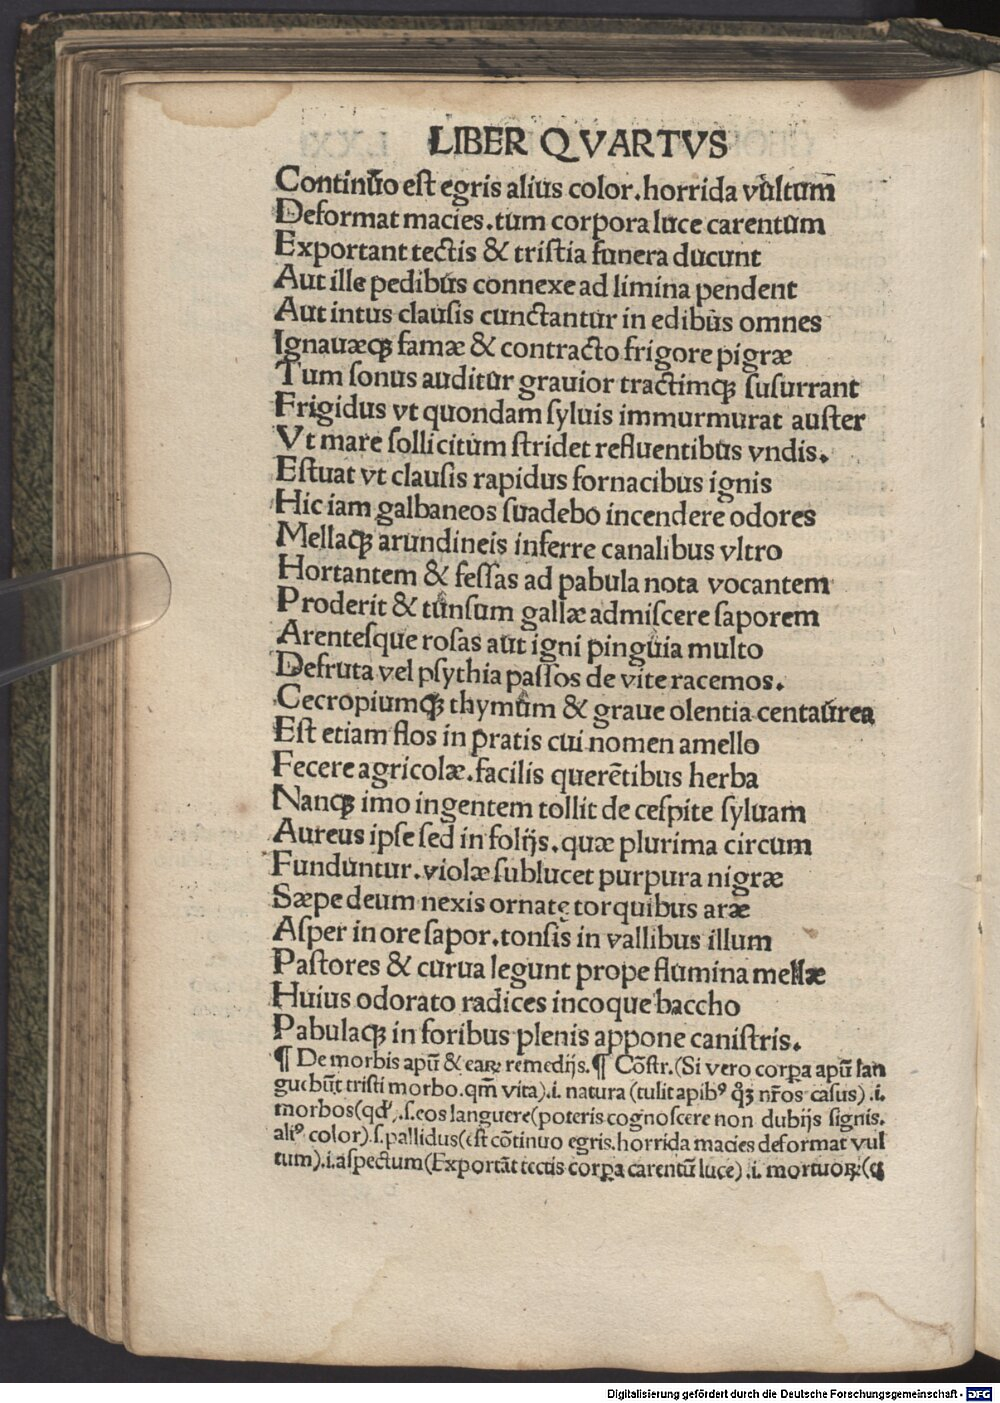 LIBER QVARTVS
Continuo est egris alius color. horrida vultum
Deformat macies. tum corpora luce carentum
Exportant tectis & tristia funera ducunt
Aut ille pedibus connexe ad limina pendent
Aut intus clausis cunctantur in edibus omnes
Ignauæqꝫ famæ & contracto frigore pigræ
Tum sonus auditur grauior tractimqꝫ susurrant
Frigidus vt quondam syluis immurmurat auster
Vt mare sollicitum stridet refluentibus vndis.
Estuat vt clausis rapidus fornacibus ignis
Hic iam galbaneos suadebo incendere odores
Mellaqꝫ arundineis inferre canalibus vltro
Hortantem & fessas ad pabula nota vocantem
Proderit & tunsum gallæ admiscere saporem
Arentesque rosas aut igni pinguia multo
Defruta vel psythia passos de vite racemos.
Cecropiumqꝫ thymum & graue olentia centaurea
Est etiam flos in pratis cui nomen amello
Fecere agricolæ. facilis querētibus herba
Nanqꝫ imo ingentem tollit de cespite syluam
Aureus ipse sed in folijs. quæ plurima circum
Funduntur. violæ sublucet purpura nigræ
Sæpe deum nexis ornatę torquibus aræ
Asper in ore sapor. tonsis in vallibus illum
Pastores & curua legunt prope flumina mellæ
Huius odorato radices incoque baccho
Pabulaqꝫ in foribus plenis appone canistris.
¶ De morbis apū & eaꝝ remedijs. ¶ Cōstr. (Si vero corpa apū lan
guebūt tristi morbo. qm̄ vita) .i. natura (tulit apibꝰ qꝫ nr̄os casus) .i.
morbos (qd̓) .s. eos languere (poteris cognoscere non dubijs signis.
aliꝰ color) .s. pallidus (est cōtinuo egris. horrida macies deformat vul
tum) .i. aspectum (Exportāt tectis corpa carentū luce) .i. mortuoꝝ (&
Digitalisierung gefördert durch die Deutsche Forschungsgemeinschaft - DFG